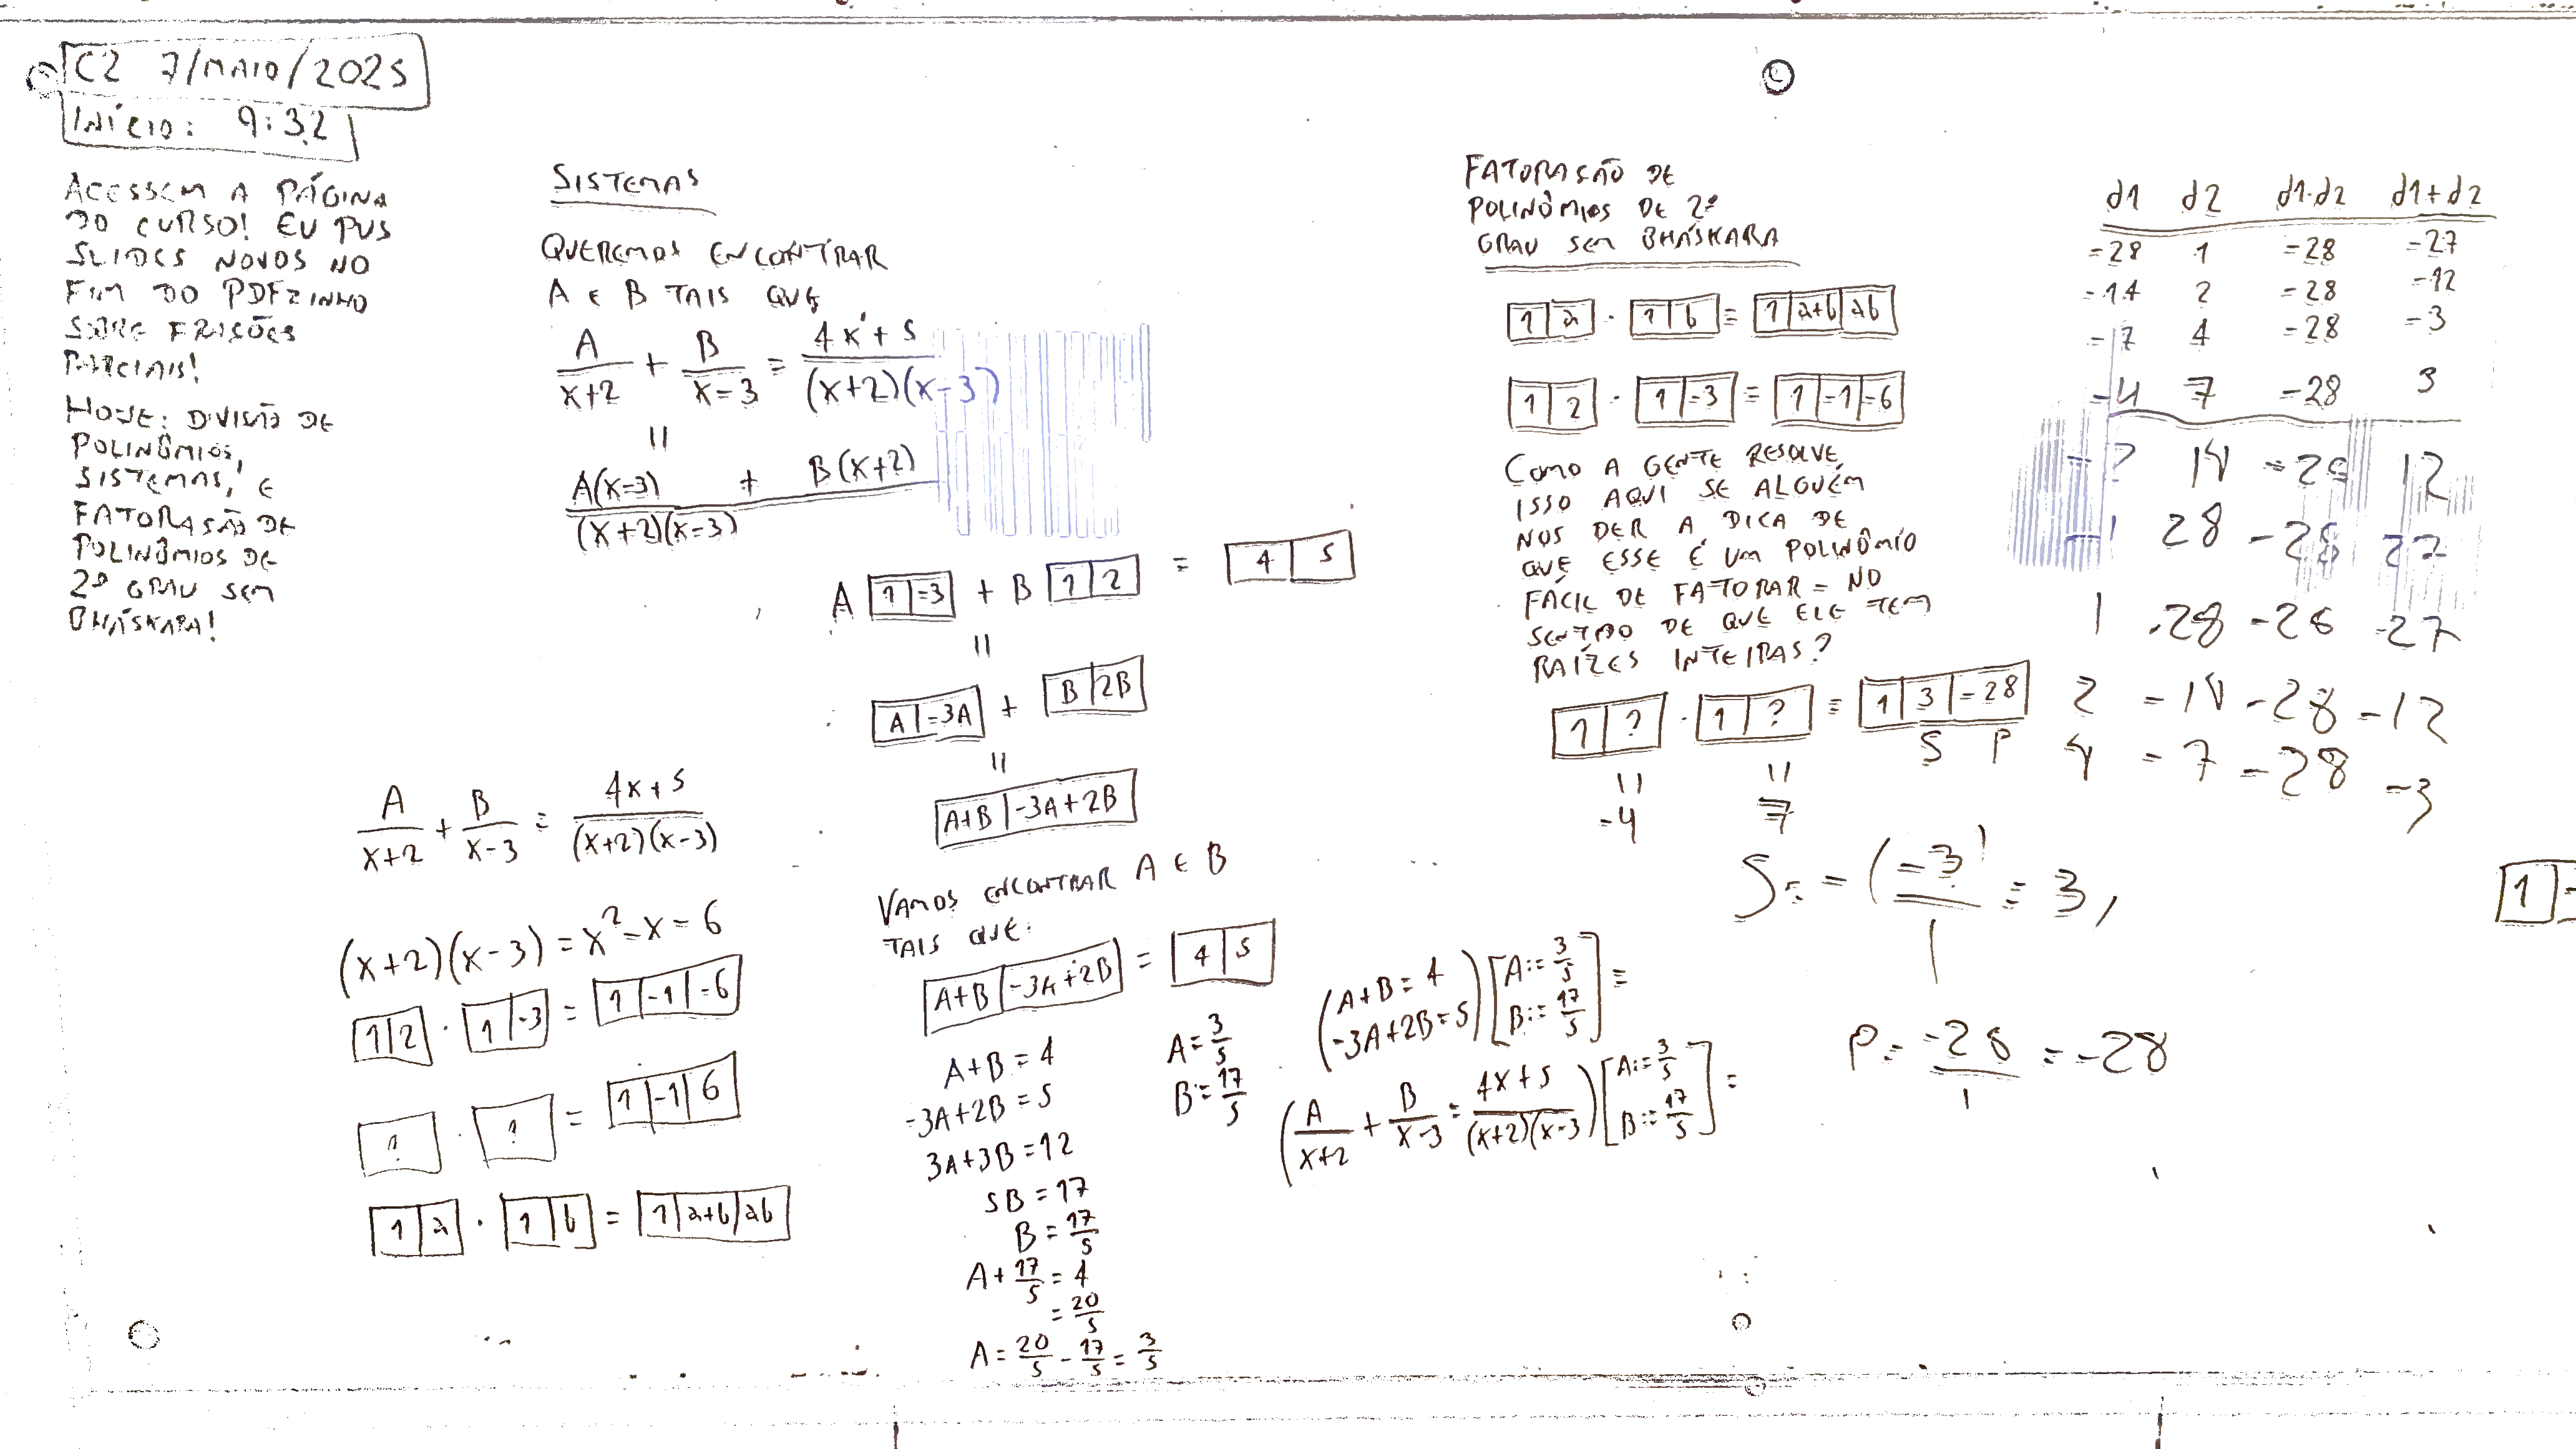 C2 7/MAIO/2025
INÍCIO: 9:32
ACESSEM A PÁGINA
DO CURSO! EU PUS
SLIDES NOVOS NO
FIM DO PDFZINHO
SOBRE FRAÇÕES
PARCIAIS!
HOJE: DIVISÃO DE
POLINÔMIOS,
SISTEMAS, E
FATORAÇÃO DE
POLINÔMIOS DE
2º GRAU SEM
BHÁSKARA!
A/(x+2) + B/(x-3) = (4x+5)/((x+2)(x-3))
(x+2)(x-3) = x²-x-6
[1|2] · [1|-3] = [1|-1|-6]
[?] · [?] = [1|-1|6]
[1|a] · [1|b] = [1|a+b|ab]
SISTEMAS
QUEREMOS ENCONTRAR
A E B TAIS QUE
A/(x+2) + B/(x-3) = (4x+5)/((x+2)(x-3))
||
(A(x-3) + B(x+2))/((x+2)(x-3))
A [1|-3] + B [1|2] = [4|5]
||
[A|-3A] + [B|2B]
||
[A+B|-3A+2B]
VAMOS ENCONTRAR A E B
TAIS QUE:
[A+B|-3A+2B] = [4|5]
A+B=4
-3A+2B=5
3A+3B=12
5B=17
B=17/5
A+17/5=4
=20/5
A=20/5-17/5=3/5
A=3/5
B=17/5
(A+B=4
-3A+2B=5) [A:=3/5
B:=17/5] =
(A/(x+2) + B/(x-3) = (4x+5)/((x+2)(x-3))) [A:=3/5
B:=17/5] =
FATORAÇÃO DE
POLINÔMIOS DE 2º
GRAU SEM BHÁSKARA
[1|a] · [1|b] = [1|a+b|ab]
[1|2] · [1|-3] = [1|-1|-6]
COMO A GENTE RESOLVE
ISSO AQUI SE ALGUÉM
NOS DER A DICA DE
QUE ESSE É UM POLINÔMIO
FÁCIL DE FATORAR - NO
SENTIDO DE QUE ELE TEM
RAÍZES INTEIRAS?
[1|?] · [1|?] = [1|3|-28]
S P
|| ||
-4 7
d1 d2 d1·d2 d1+d2
-28 1 -28 -27
-14 2 -28 -12
-7 4 -28 -3
-4 7 -28 3
-2 14 -28 12
-1 28 -28 27
1 -28 -28 -27
2 -14 -28 -12
4 -7 -28 -3
S = -(-3)/1 = 3,
P = -28/1 = -28
[1|-